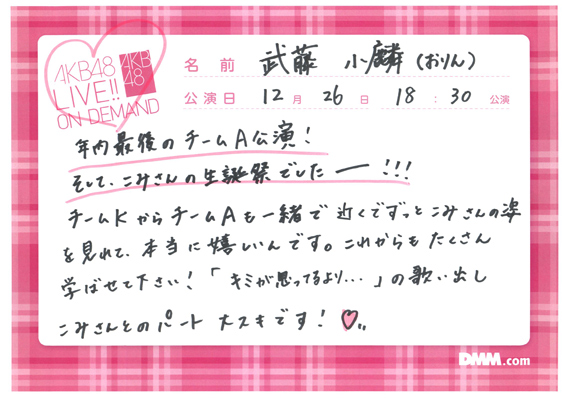 AKB48
LIVE!!
ON DEMAND
AKB
48
名 前 武藤 小麟(おりん)
公演日 12月 26日 18:30公演
年内最後のチームA公演!
そして、こみさんの生誕祭でしたー!!!
チームKからチームAも一緒で近くでずっとこみさんの姿
を見れて、本当に嬉しいんです。これからもたくさん
学ばせて下さい!「キミが思ってるより...」の歌い出し
こみさんとのパート大スキです!♡..
DMM.com